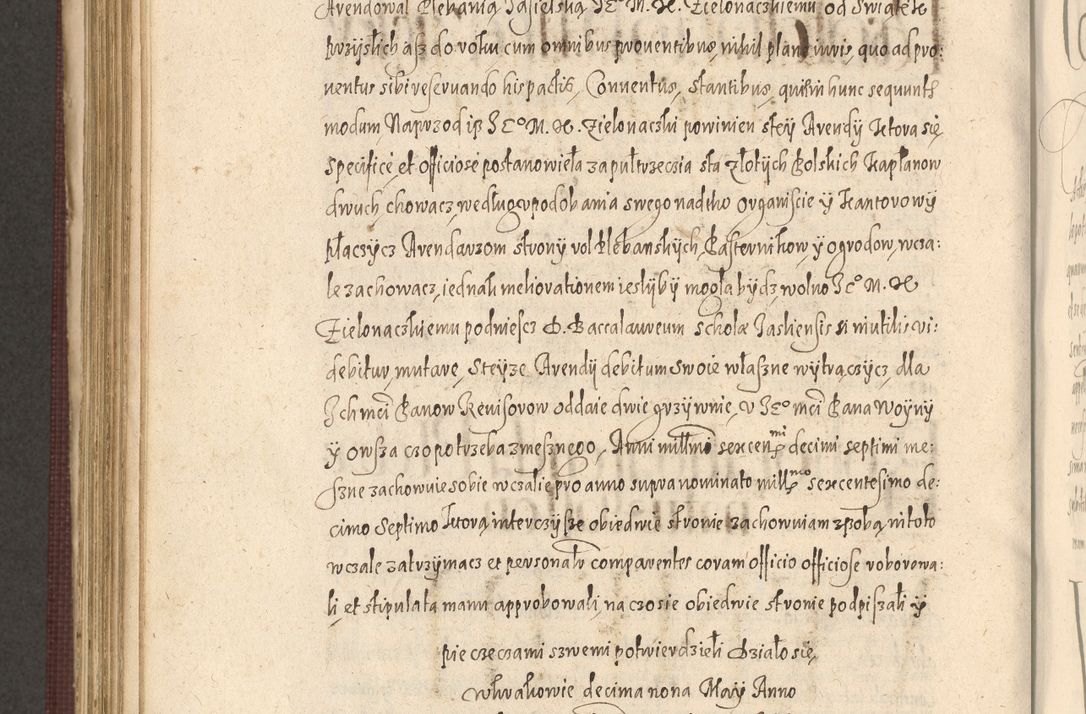 Arendował Plebanią Jasielską JEº M. X. Zielonackiemu od Swiątek
przyslich asz do roku cum omnibus prouentibus, nihil plane iuris, quo ad pro:
uentus sibi reseruando his pactis, Conuentus, stantibus, quibus hunc sequunt
modum Naprzod isz JEº M. X. Zielonaczki powinien stey Arendy ktora się
specifice et officiose postanowieła za pułtrzeczia sta złotych Polskich Kapłanow
dwuch chowacz, według vpodobania swego nad tho Organiscie y Kantorowy
płaczycz Arendarzom strony rol Plebanskych, Pasternikow, y ogrodow, wcza:
le zachowacz, iednak meliorationem iesliby mogła bydz, wolno JEº M. X
Zielonaczkiemu podniescz D. Baccalaureum scholæ Jasliensis si inutilis vi:
debitur, mutare, Steyze Arendy debitum swoie własne wytrączycz, dla
Ich mci Panow Reuisorow oddaie dwie grzywnie, v JEº mci Pana Woyny
y owsza czo potrzeba zmesznego, Anni millmi sexcenmi decimi septimi me:
szne zachowuie sobie wczalie pro anno supra nominato millmo sexcentesimo de:
cimo Septimo ktorą interczysze obiedwie stronie zachowuiam zsobą, ni toto
wczale zatrzymacz et personalr comparentes coram officio officiose roborowa:
li et stipulata manu approbowali, na czosie obiedwie stronie podpiszali y
pie czeczami szwemi potwierdzieli Działo się,
w krakowie decima nona May Anno